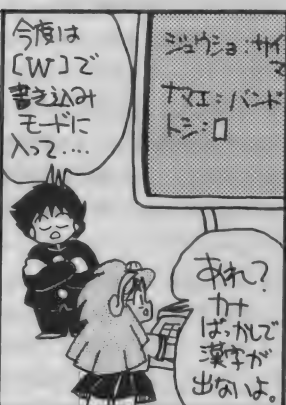 今度は
[W]で
書き込み
モードに
入って‥‥
ジュウショ:サイ
マ
ナマエ:バンド
トシ:
あれ?
カナ
ばっかしで
漢字が
出ないよ。